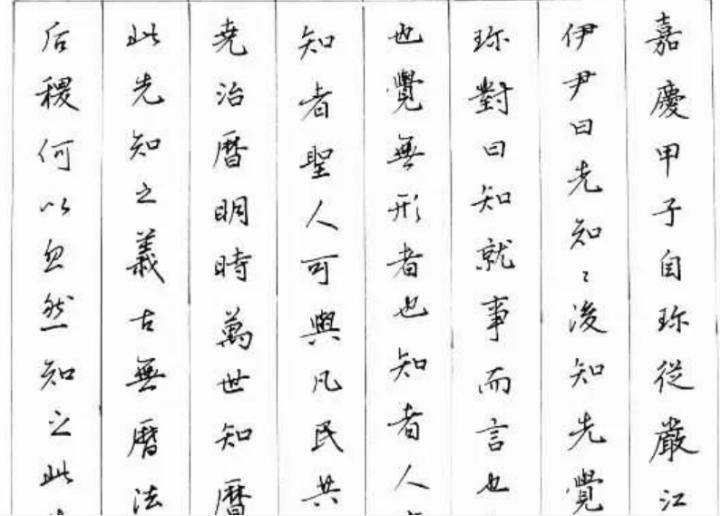 嘉慶甲子自珎從嚴江
伊尹曰先知〻後知先覺
珎對曰知就事而言也
也覺無形者也知者人
知者聖人可與凡民共
堯治曆明時萬世知曆
此先知之義古無曆法
后稷何以忽然知之此